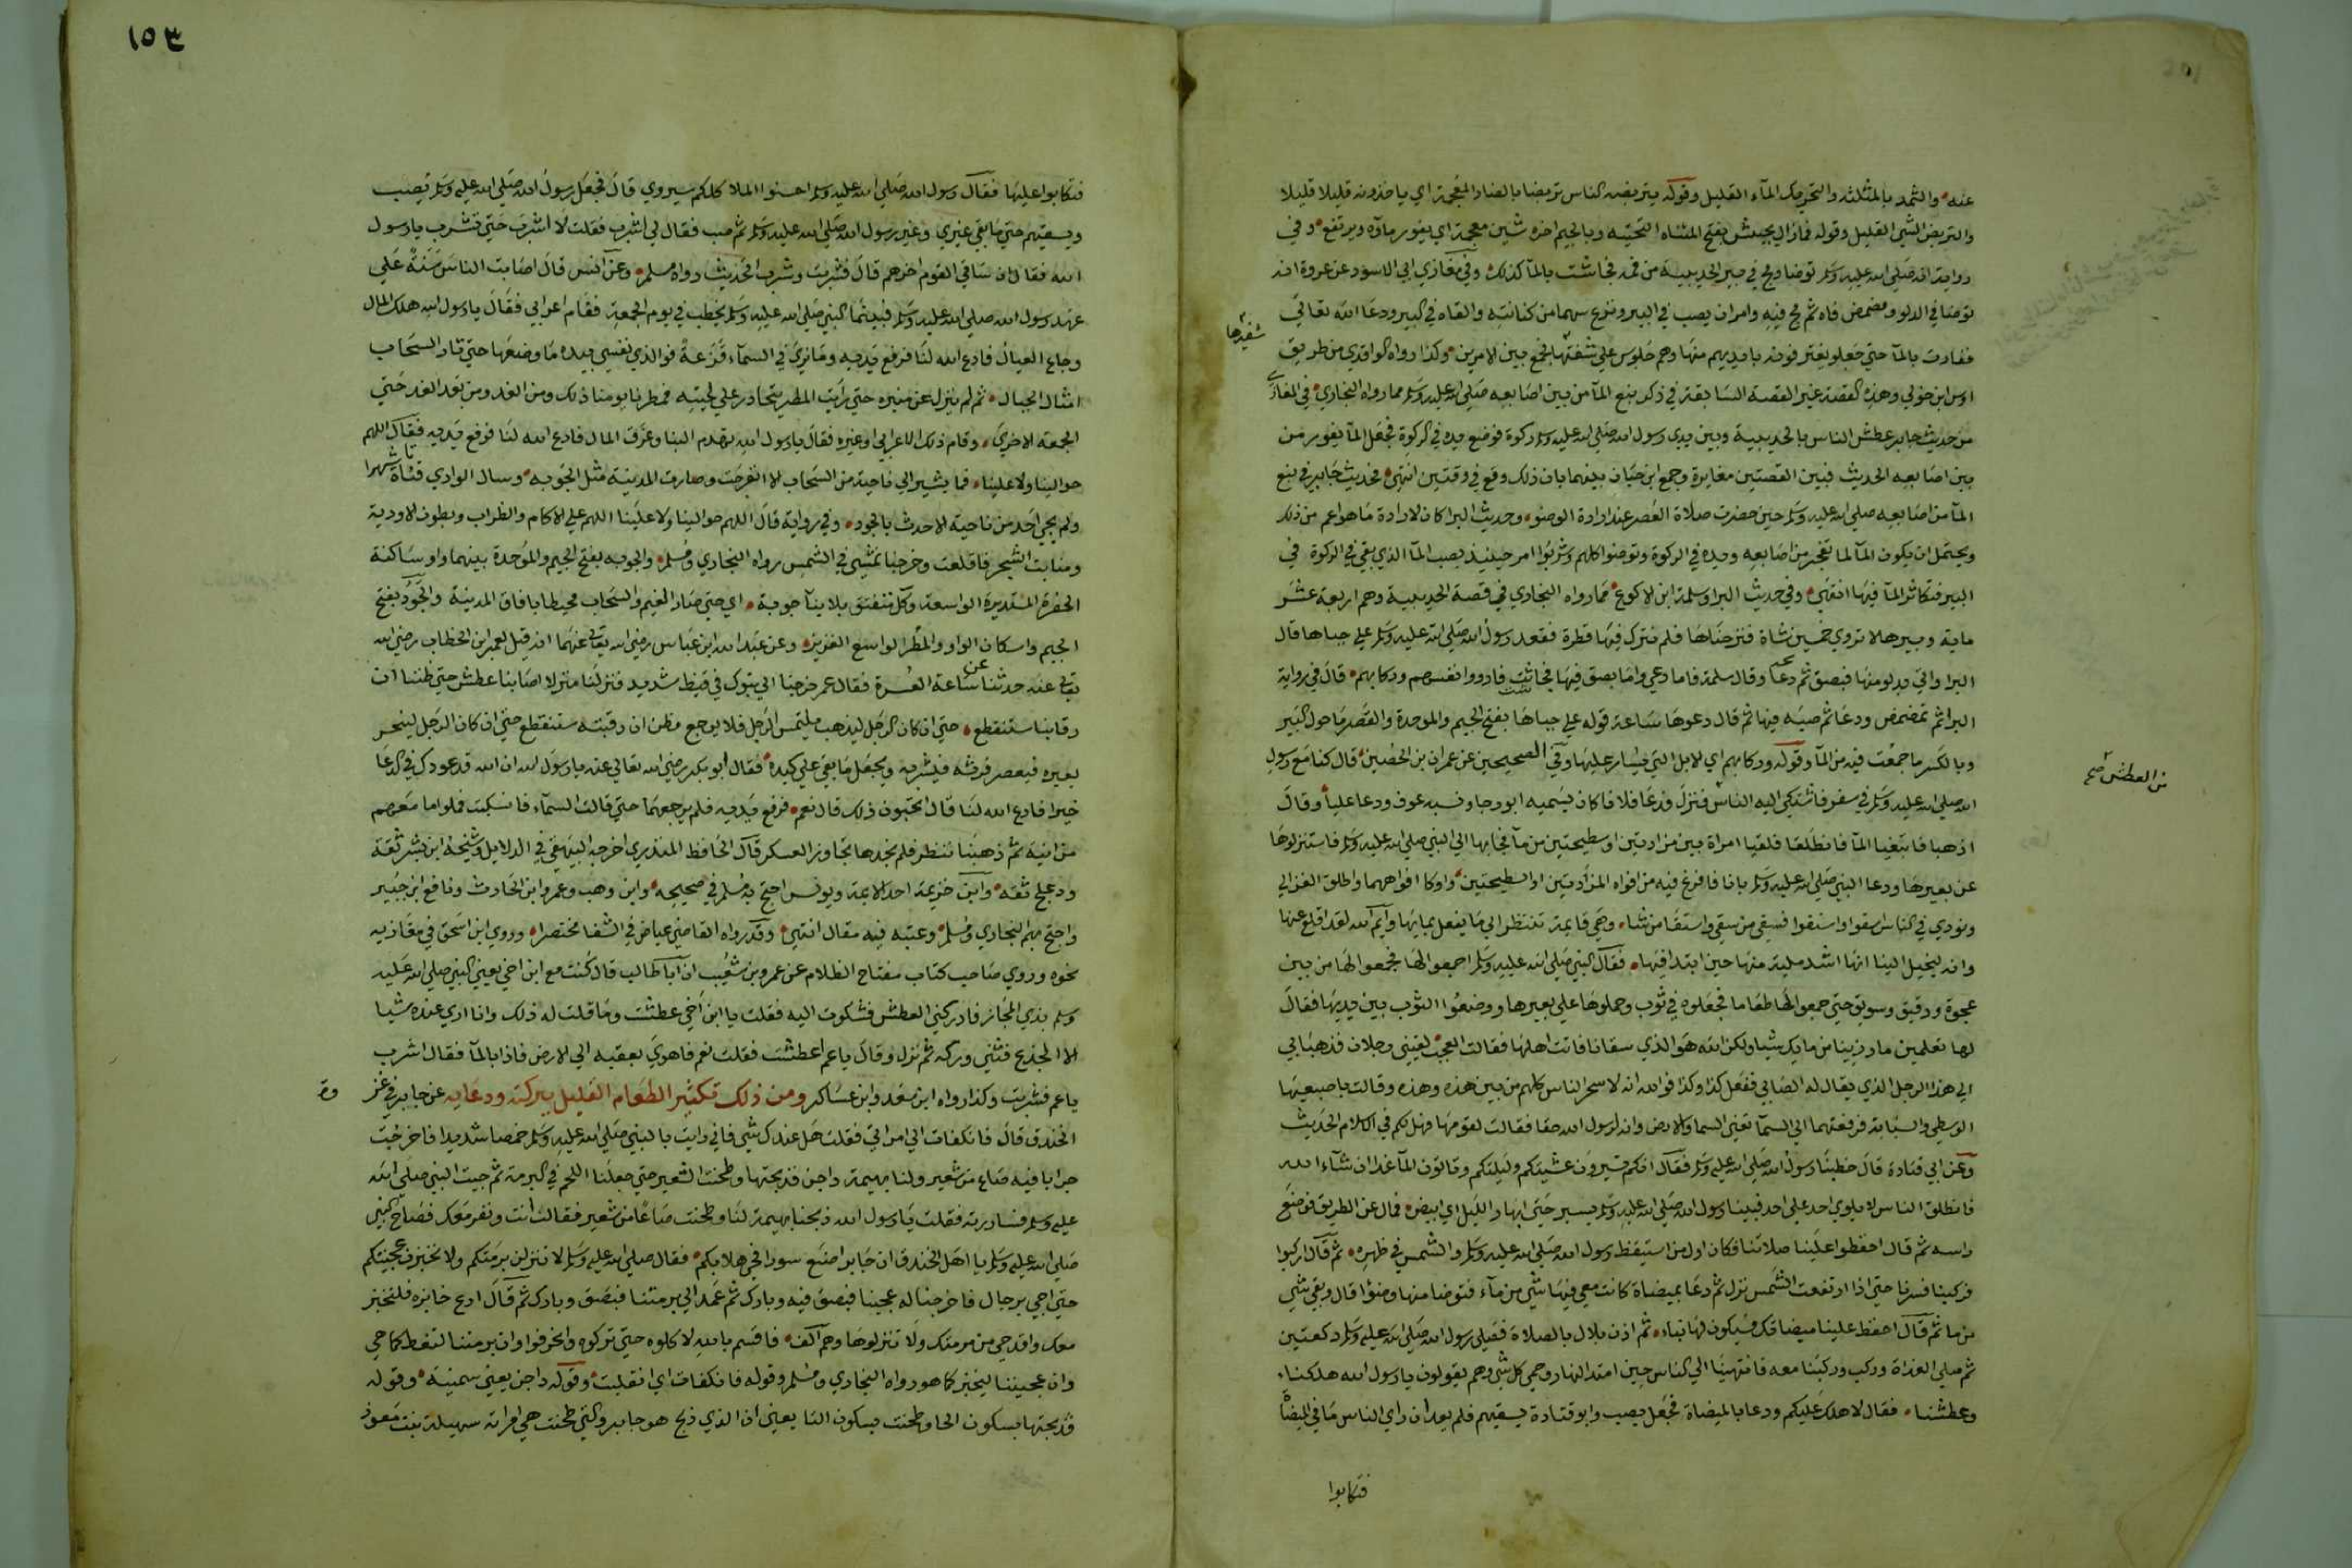 عنه والثمد بالمثلثه والتحريك المآء القليل وقوله يتربضه الناس تربضا بالضاد المعجمة اي ياخذونه قليلا قليلا
والتربض الشي القليل وقوله فمازال يجيش بفتح المثناه التحتيه وبالجيم اخره شين معجمة اي يفور مآوه ويرتفع وفي
رواية انه صلي الله عليه وسلم توضا ومج في بير الحديبية من فمه فجاشت بالمآ كذلك وفي مغازي ابي الاسود عن عروة انه
توضا في الدلو ومضمض فاه ثم مج فيه وامر ان يصب في البير ونزع سهما من كنانته والقاه في البير ودعا الله تعالي
ففارت بالمآ حتي جعلو يغترفون بايديهم منها وهم جلوس علي شفتها فجمع بين الامرين وكذا رواه الواقدي من طريق
شفيرها
اوس ابن خولي وهذه القصة غير القصة السابقة في ذكر نبع المآ من بين اصابعه صلي الله عليه وسلم مما رواه البخاري في المغازي
من حديث جابر عطش الناس بالحديبية وبين يدي رسول الله صلي الله عليه وسلم ركوة فوضع يده في الركوة فجعل المآ يفور من
بين اصابعه الحديث فبين القصتين مغايرة وجمع ابن حبان بينهما بان ذلك وقع في وقتين انتهي فحديث جابر في نبع
المآ من اصابعه صلي الله عليه وسلم حين حضرت صلاة العصر عند ارادة الوضوء وحديث البرا كان لارادة ما هو اعم من ذلك
ويحتمل ان يكون المآ لما تفجر من اصابعه ويده في الركوة وتوضوا كلهم وشربوا امر حينيذ بصب المآ الذي بقي في الركوة في
البير فتكاثر المآ فيها انتهي وفي حديث البرا وسلمة ابن الاكوع مما رواه البخاري في قصة الحديبية وهم اربعة عشر
ماية وبيرها لا تروي خمسين شاة فنزحناها فلم نترك فيها قطرة فقعد رسول الله صلي الله عليه وسلم علي جباها قال
البرا واتي بدلو منها فبصق ثم دعا وقال سلمة فاما دعي واما بصق فيها فجاشت فارووا انفسهم وركابهم قال في رواية
البرا ثم تمضمض ودعا ثم صبه فيها ثم قال دعوها ساعة قوله علي جباها بفتح الجيم والموحدة والقصر ما حول البير
وبالكسر ما جمعت فيه من المآ وقوله وركابهم اي الابل التي يسار عليها وفي الصحيحين عن عمران بن الحصين قال كنا مع رسول
الله صلي الله عليه وسلم في سفر فاشتكي اليه الناس فنزل فدعا فلانا كان يسميه ابورجا ونسيه عوف ودعا عليا وقال
من العطش صح
اذهبا فابتغيا المآ فانطلقا فلقيا امراة بين مزادتين او سطيحتين من مآ فجابها الي النبي صلي الله عليه وسلم فاستنزلوها
عن بعيرها ودعا النبي صلي الله عليه وسلم بانا فافرغ فيه من افواه المزادتين او السطيحتين واوكا افواههما واطلق العزالي
ونودي في الناس اسقوا واستقوا فسقي من سقي واستقا من شاء وهي قايمة تنتظر الي ما يفعل بمايها وايم الله لقد اقلع عنها
وانه ليخيل الينا انها اشد ملية منها حين ابتدا فيها فقال النبي صلي الله عليه وسلم اجمعوا لها فجمعوا لها من بين
عجوة ودقيق وسويق حتي جمعوا لها طعاما فجعلوه في ثوب وحملوها علي بعيرها ووضعوا الثوب بين يديها فقال
لها تعلمين مارزينا من مايك شيا ولكن الله هو الذي سقانا فاتت اهلها فقالت العجب لقيني رجلان فذهبا بي
الي هذا الرجل الذي يقال له الصابي ففعل كذا وكذا فوالله انه لاسحر الناس كلهم من بين هذه وهذه وقالت باصبعيها
الوسطي والسبابة فرفعتهما الي السمآ تعني السما والارض وانه لرسول الله حقا فقالت لقومها فهل لكم في الاسلام الحديث
وعن ابي قتادة قال خطبنا رسول الله صلي الله عليه وسلم فقال انكم تسيرون عشيتكم وليلتكم وتاتون المآ غدا ان شآء الله
فانطلق الناس لا يلوي احد علي احد فبينا رسول الله صلي الله عليه وسلم يسير حتي ابهار الليل اي ابيض فمال عن الطريق فوضع
راسه ثم قال احفظوا علينا صلاتنا فكان اول من استيقظ رسول الله صلي الله عليه وسلم والشمس في ظهره ثم قال اركبوا
فركبنا فسرنا حتي اذا ارتفعت الشمس نزل ثم دعا بميضاة كانت معي فيها شي من مآء فتوضا منها وضوءا قال وبقي شي
من ما ثم قال احفظ علينا ميضاتك فسيكون لها نباء ثم اذن بلال بالصلاة فصلي رسول الله صلي الله عليه وسلم ركعتين
ثم صلي الغداة وركب وركبنا معه فانتهينا الي الناس حين امتد النهار وحمي كل شي وهم يقولون يارسول الله هلكنا
وعطشنا فقال لا هلك عليكم ودعا بالميضاة فجعل يصب وابو قتادة يسقيهم فلم يعد ان راي الناس ما في الميضاة
فتكابوا
١٥٣
فتكابوا عليها فقال رسول الله صلي الله عليه وسلم احسنوا الملا كلكم سيروي قال فجعل رسول الله صلي الله عليه وسلم يصب
ويسقيهم حتي ما بقي غيري وغير رسول الله صلي الله عليه وسلم ثم صب فقال لي اشرب فقلت لا اشرب حتي تشرب يارسول
الله فقال ان ساقي القوم اخرهم قال فشربت وشرب الحديث رواه مسلم وعن انس قال اصابت الناس سنة علي
عهد رسول الله صلي الله عليه وسلم فبينما النبي صلي الله عليه وسلم يخطب في يوم الجمعة فقام اعرابي فقال يارسول الله هلك المال
وجاع العيال فادع الله لنا فرفع يديه وما نري في السمآء قزعة فوالذي نفسي بيده ما وضعها حتي ثار السحاب
امثال الجبال ثم لم ينزل عن منبره حتي رايت المطر يتحادر علي لحيته فمطرنا يومنا ذلك ومن الغد ومن بعد الغد حتي
الجمعة الاخري وقام ذلك الاعرابي او غيره فقال يارسول الله تهدم البنا وغرق المال فادع الله لنا فرفع يديه فقال اللهم
حوالينا ولا علينا فما يشير الي ناحية من السحاب الا انفرجت وصارت المدينة مثل الجوبه وسال الوادي قناة شهرا
ولم يجي احد من ناحية الا حدث بالجود وفي رواية قال اللهم حوالينا ولا علينا اللهم علي الاكام والظراب وبطون الاودية
ومنابت الشجر فاقلعت وخرجنا نمشي في الشمس رواه البخاري ومسلم والجوبه بفتح الجيم والموحدة بينهما واو ساكنة
الحفرة المستديرة الواسعة وكل منفتق بلا بنآ جوبة اي حتي صار الغيم والسحاب محيطا بافاق المدينة والجود بفتح
الجيم واسكان الواو والمطر الواسع الغزير وعن عبد الله ابن عباس رضي الله تعالي عنهما انه قيل لعمر ابن الخطاب رضي الله
تعالي عنه حدثنا عن ساعة العسرة فقال عمر خرجنا الي تبوك في قيظ شديد فنزلنا منزلا اصابنا عطش حتي ظننا ان
رقابنا ستنقطع حتي ان كان الرجل ليذهب يلتمس الرجل فلا يرجع يظن ان رقبته ستنقطع حتي ان كان الرجل لينحر
بعيره فيعصر فرثه فيشربه ويجعل ما بقي علي كبده فقال ابو بكر رضي الله تعالي عنه يارسول الله ان الله قد عودك في الدعا
خيرا فادع الله لنا قال اتحبون ذلك قال نعم فرفع يديه فلم يرجعهما حتي قالت السمآء فانسكبت فملوا ما معهم
من انية ثم ذهبنا ننظر فلم نجدها تجاوز العسكر قال الحافظ المنذري اخرجه البيهقي في الدلايل وشيخه ابن بشر ثقة
ودعلج ثقه وابن خزيمة احد الايمة ويونس احتج به مسلم في صحيحه وابن وهب وعمرو ابن الحارث ونافع ابن جبير
واحتج بهم البخاري ومسلم وعتبه فيه مقال انتهي وقد رواه القاضي عياض في الشفا مختصرا وروي ابن اسحق في مغازيه
نحوه وروي صاحب كتاب مفتاح الظلام عن عمرو بن شعيب ان ابا طالب قال كنت مع ابن اخي يعني النبي صلي الله عليه
وسلم بذي المجاز فادركني العطش فشكوت اليه فقلت يا ابن اخي عطشت وما قلت له ذلك وانا اري عنده شيا
الا الجذع فثني وركه ثم نزل وقال ياعم اعطشت فقلت نعم فاهوي بعقبه الي الارض فاذا بالمآ فقال اشرب
ياعم فشربت وكذا رواه ابن سعد وابن عساكر ومن ذلك تكثير الطعام القليل ببركته ودعايه عن جابر في غز
وة
الخندق قال فانكفات الي امراتي فقلت هل عندك شي فاني رايت بالنبي صلي الله عليه وسلم خمصا شديدا فاخرجت
جرابا فيه صاع من شعير ولنا بهيمة داجن فذبحتها وطحنت الشعير حتي جعلنا اللحم في البرمة ثم جيت النبي صلي الله
عليه وسلم فساررته فقلت يارسول الله ذبحنا بهيمة لنا وطحنت صاعا من شعير فقال انت ونفر معك فصاح النبي
صلي الله عليه وسلم يا اهل الخندق ان جابرا صنع سورا فحي هلا بكم فقال صلي الله عليه وسلم لا تنزلن برمتكم ولا تخبزن عجينكم
حتي اجي برجال فاخرجنا له عجينا فبصق فيه وبارك ثم عمد الي برمتنا فبصق وبارك ثم قال ادع خابزه فلتخبز
معك واقدحي من برمتك ولا تنزلوها وهم الف فاقسم بالله لاكلوه حتي تركوه وانحرفوا وان برمتنا لتغط كما هي
وان عجيننا ليخبز كما هو رواه البخاري ومسلم وقوله فانكفات اي انقلبت وقوله داجن يعني سمينة وقوله
فذبحتها بسكون الحا وطحنت بسكون التا يعني ان الذي ذبح هو جابر والتي طحنت هي امراته سهيلة بنت معوذ